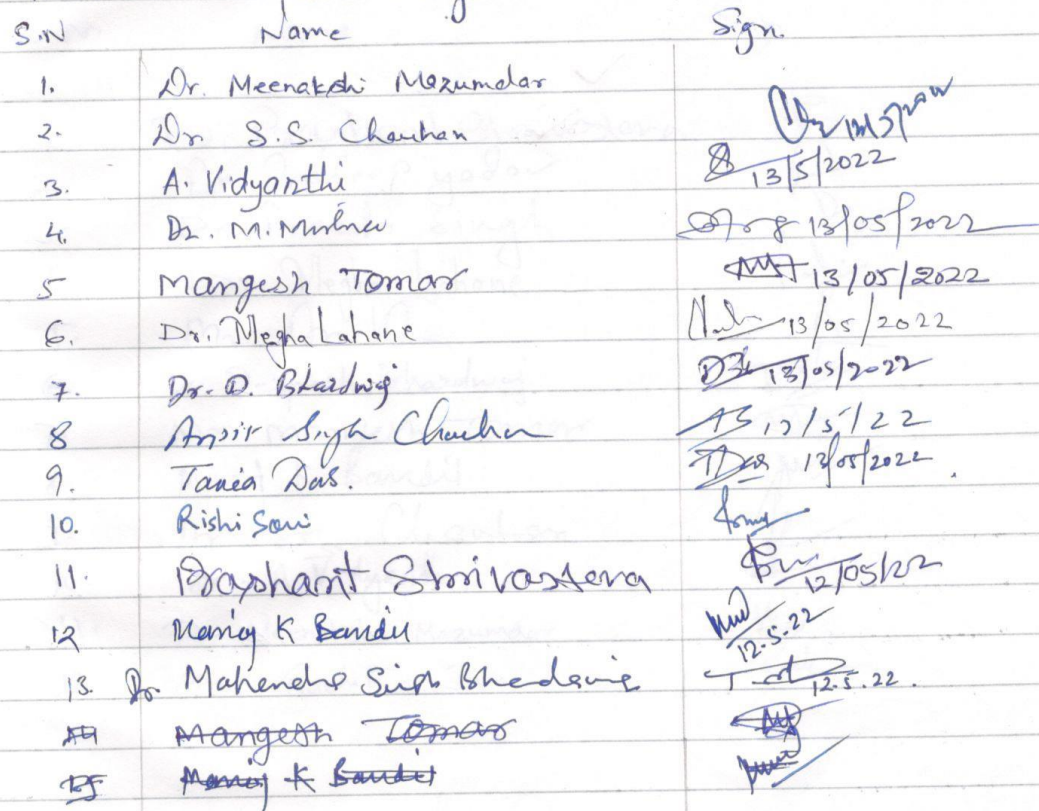 S.N Name Sign.
1. Dr. Meenakshi Mazumdar
2. Dr S.S. Chauhan
3. A. Vidyarthi 13/5/2022
4. Dr. M. 13/05/2022
5 Mangesh Tomar 13/05/2022
6. Dr. Megha Lahane 13/05/2022
7. Dr. D. Bhardwaj 13/05/2022
8 Singh Chauhan AS 12/5/22
9. Tania Das. TDas 13/05/2022
10. Rishi Soni
11. Prashant Shrivastava 12/05/22
12 Manoj K Bandil 12.5.22
13. Dr Mahendra Singh Bhadauria 12.5.22.
14 Mangesh Tomar
15 Manoj K Bandil